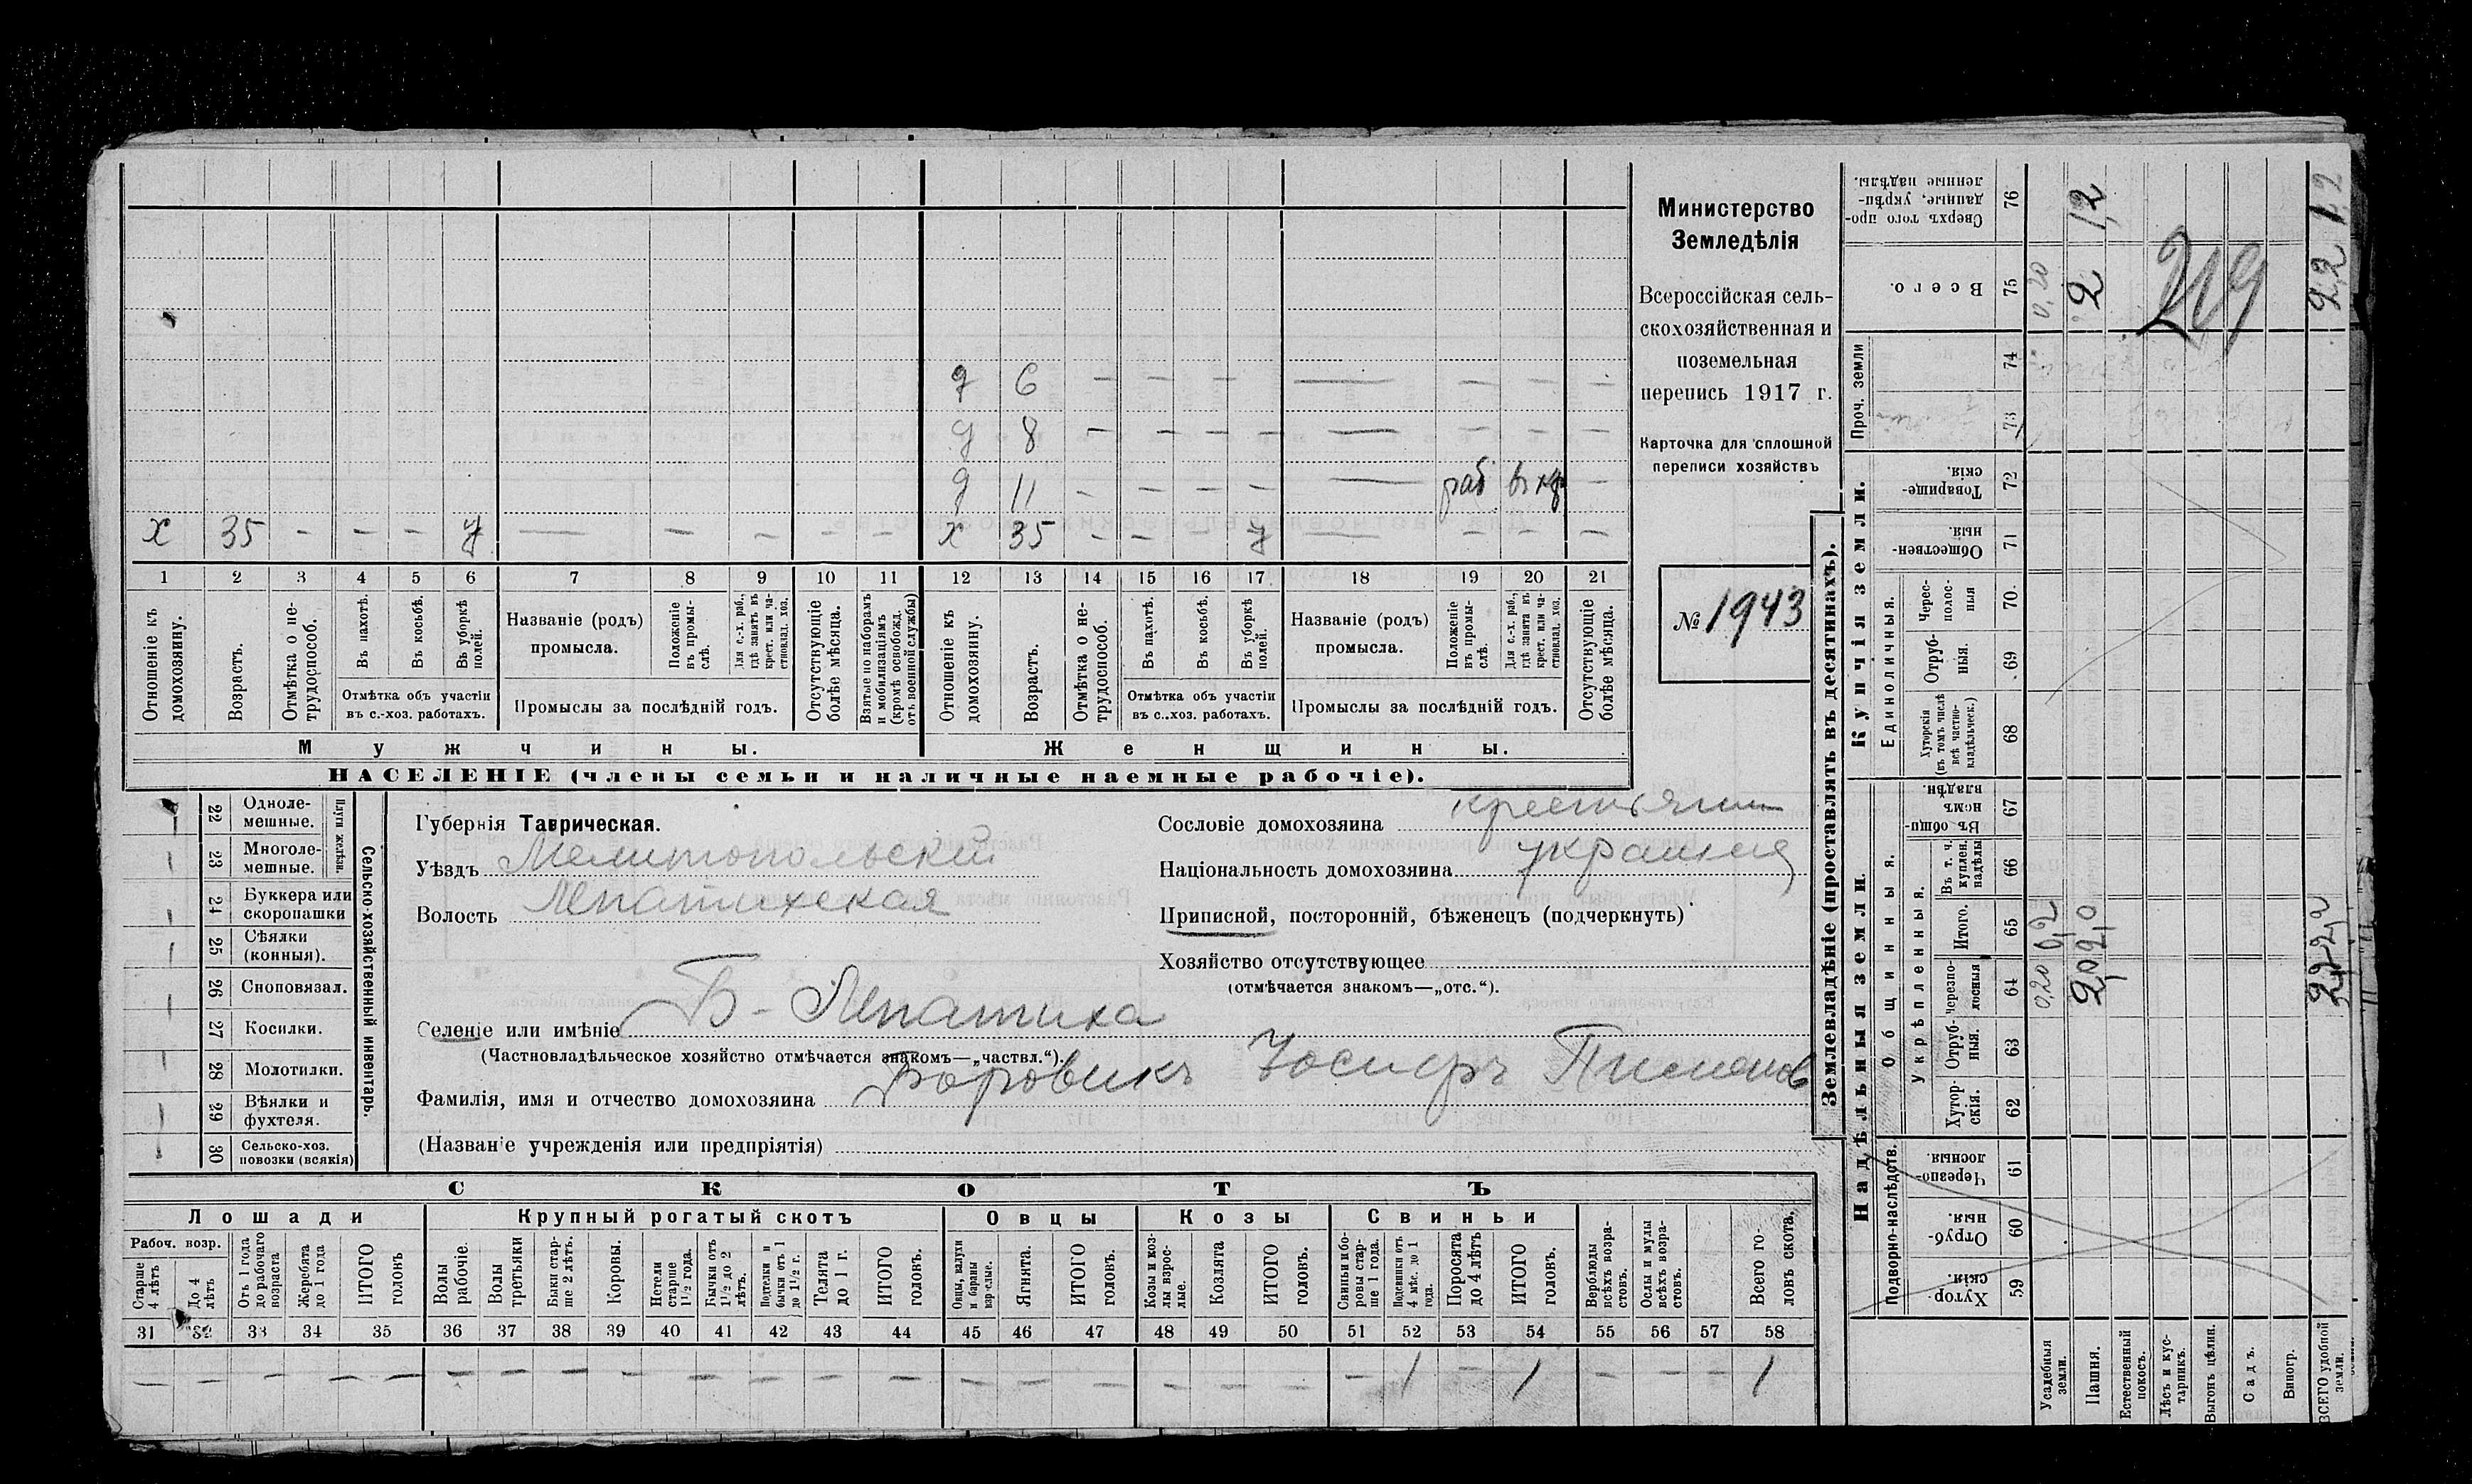 Министерство
Земледѣлія
Всероссійская сель-
скохозяйственная и
поземельная
перепись 1917 г.
Карточка для сплошной
переписи хозяйствъ
№ 1943
д 6 — — — — — — —
д 8 — — — — — — —
д 11 — — — — — раб —
х 35 — — — у — — — — — х 35 — — — у — — — —
1 2 3 4 5 6 7 8 9 10 11 12 13 14 15 16 17 18 19 20 21
Отношеніе къ домохозяину.
Возрастъ.
Отмѣтка о не-трудоспособ.
Въ пахотѣ.
Въ косьбѣ.
Въ уборкѣ полей.
Отмѣтка объ участіи
въ с.-хоз. работахъ.
Названіе (родъ)
промысла.
Положеніе въ промы-слѣ.
Для с.-х. раб., гдѣ занять въ крест. или ча-стновлад. хоз.
Промыслы за послѣдній годъ.
Отсутствующіе болѣе мѣсяца.
Взятые по наборамъ и мобилизаціямъ (кромѣ освобожд. отъ военной службы)
Отношеніе къ домохозяину.
Возрастъ.
Отмѣтка о не-трудоспособ.
Въ пахотѣ.
Въ косьбѣ.
Въ уборкѣ полей.
Отмѣтка объ участіи
въ с.-хоз. работахъ.
Названіе (родъ)
промысла.
Положеніе въ промы-слѣ.
Для с.-х. раб., гдѣ занята въ крест. или ча-стновлад. хоз.
Промыслы за послѣдній годъ.
Отсутствующіе болѣе мѣсяца.
Мужчины.
Женщины.
НАСЕЛЕНІЕ (члены семьи и наличные наемные рабочіе).
Сельско-хозяйственный инвентарь.
Плуги желѣзн.
22 Одноле-мешные. —
23 Многоле-мешные. —
24 Буккера или скоропашки —
25 Сѣялки (конныя). —
26 Сноповязал. —
27 Косилки. —
28 Молотилки. —
29 Вѣялки и фухтеля. —
30 Сельско-хоз. повозки (всякія) —
Губернія Таврическая.
Уѣздъ Мелитопольскій
Волость Лепатихская
Селеніе или имѣніе Б - Лепатиха
(Частновладѣльческое хозяйство отмѣчается знакомъ—„частвл.“).
Фамилія, имя и отчество домохозяина Боровикъ Іосифъ Пименов
(Названіе учрежденія или предпріятія)
Сословіе домохозяина крестьянин
Національность домохозяина украинец
Приписной, посторонній, бѣженецъ (подчеркнуть)
Хозяйство отсутствующее
(отмѣчается знакомъ—„отс.“).
СКОТЪ
Лошади
Крупный рогатый скотъ
Овцы
Козы
Свиньи
Рабоч. возр.
Старше 4 лѣтъ
До 4 лѣтъ
Отъ 1 года до рабочаго возраста
Жеребята до 1 года
ИТОГО головъ
Волы рабочіе.
Волы третьяки
Быки стар-ше 2 лѣтъ.
Коровы.
Нетели старше 1½ года.
Бычки отъ 1½ до 2 лѣтъ.
Подтелки и бычки отъ 1 до 1½ г.
Телята до 1 г.
ИТОГО головъ.
Овцы, валухи и бараны взрослые.
Ягнята.
ИТОГО головъ.
Козы и коз-лы взрос-лые.
Козлята
ИТОГО головъ.
Свиньи и бо-ровы стар-ше 1 года.
Подсвинки отъ 4 мѣс. до 1 года.
Поросята до 4 лѣтъ
ИТОГО головъ.
Верблюды всѣхъ возра-стовъ.
Ослы и мулы всѣхъ возра-стовъ.
Всего го-ловъ скота.
31 32 33 34 35 36 37 38 39 40 41 42 43 44 45 46 47 48 49 50 51 52 53 54 55 56 57 58
— — — — — — — — — — — — — — — — — — — — — 1 — 1 — — — 1
Землевладѣніе (проставлять въ десятинахъ).
Надѣльныя земли.
Купчія земли.
Проч. земли
Подворно-наслѣдств.
Общинныя.
Укрѣпленныя.
Единоличныя.
59 Хутор-скія.
60 Отруб-ныя.
61 Черезпо-лосныя.
62 Хутор-скія.
63 Отруб-ныя.
64 черезпо-лосныя
65 Итого.
66 Въ т. ч. куплен. надѣлы
67 Въ общи-номъ владѣн.
68 Хуторскія (въ томъ числѣ всѣ частно-владѣльческ.)
69 Отруб-ныя.
70. Черес-полос-ныя
71 Обществен-ныя.
72 Товарище-скія.
73
74
75 Всего.
76 Сверхъ того про-данные, укрѣп-ленные надѣлы.
Усадебныя земли. 0,20 0,2 0,20
Пашня. 2,0 2,0 2 1,2
Естественный покосъ.
Лѣсъ и кус-тарникъ.
Выгонъ цѣлин.
Садъ.
Виногр.
ВСЕГО удобной земли. 2,2 2,2 2,2 1,2
219